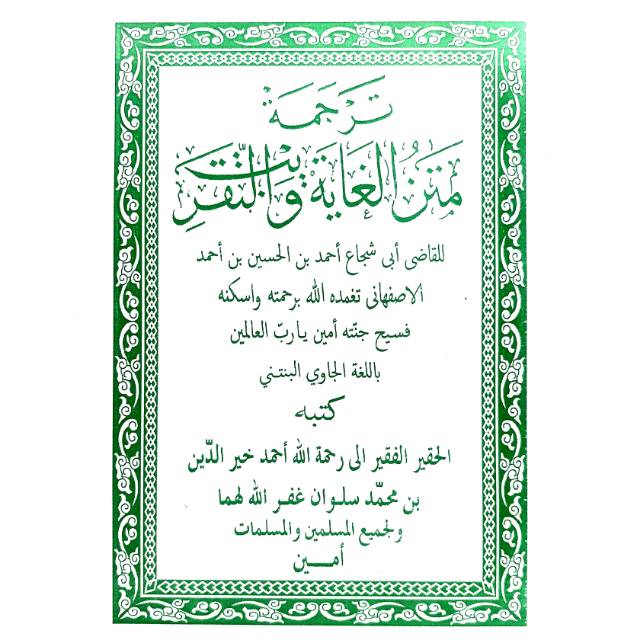 ترجمة
متن الغاية والتقريب
للقاضى أبى شجاع أحمد بن الحسين بن أحمد
الاصفهانى تغمده الله برحمته واسكنه
فسيح جنّته أمين يا ربّ العالمين
باللغة الجاوي البنتني
كتبه
الحقير الفقير الى رحمة الله أحمد خير الدّين
بن محمّد سلوان غفر الله لهما
ولجميع المسلمين والمسلمات
أمين